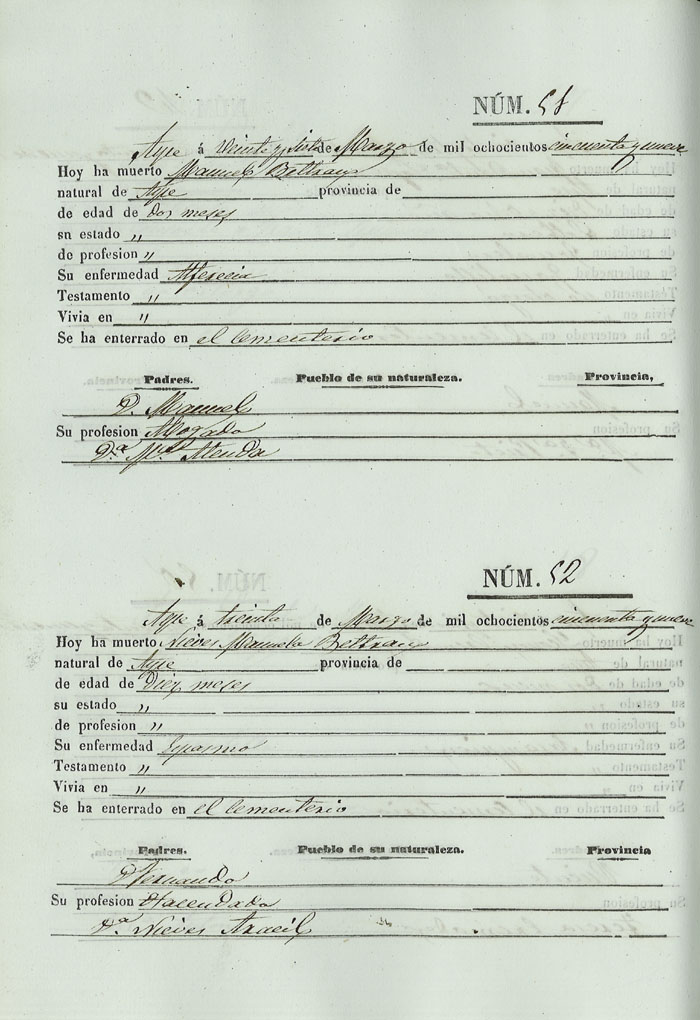 NÚM. 51
Aspe á veinte y siete de Marzo de mil ochocientos cincuenta y nueve
Hoy ha muerto Manuel Beltran
natural de Aspe provincia de
de edad de dos meses
su estado „
de profesion „
Su enfermedad Alferecia
Testamento „
Vivia en „
Se ha enterrado en el Cementerio
Padres. Pueblo de su naturaleza. Provincia,
D. Manuel
Su profesion Abogado
D.ª M.ª
NÚM. 52
Aspe á treinta de Marzo de mil ochocientos cincuenta y nueve
Hoy ha muerto Nieves Manuela Beltran
natural de Aspe provincia de
de edad de Diez meses
su estado „
de profesion „
Su enfermedad Espasmo
Testamento „
Vivia en „
Se ha enterrado en el Cementerio
Padres. Pueblo de su naturaleza. Provincia
D. Fernando
Su profesion Hacendado
D.ª Nieves Aracil